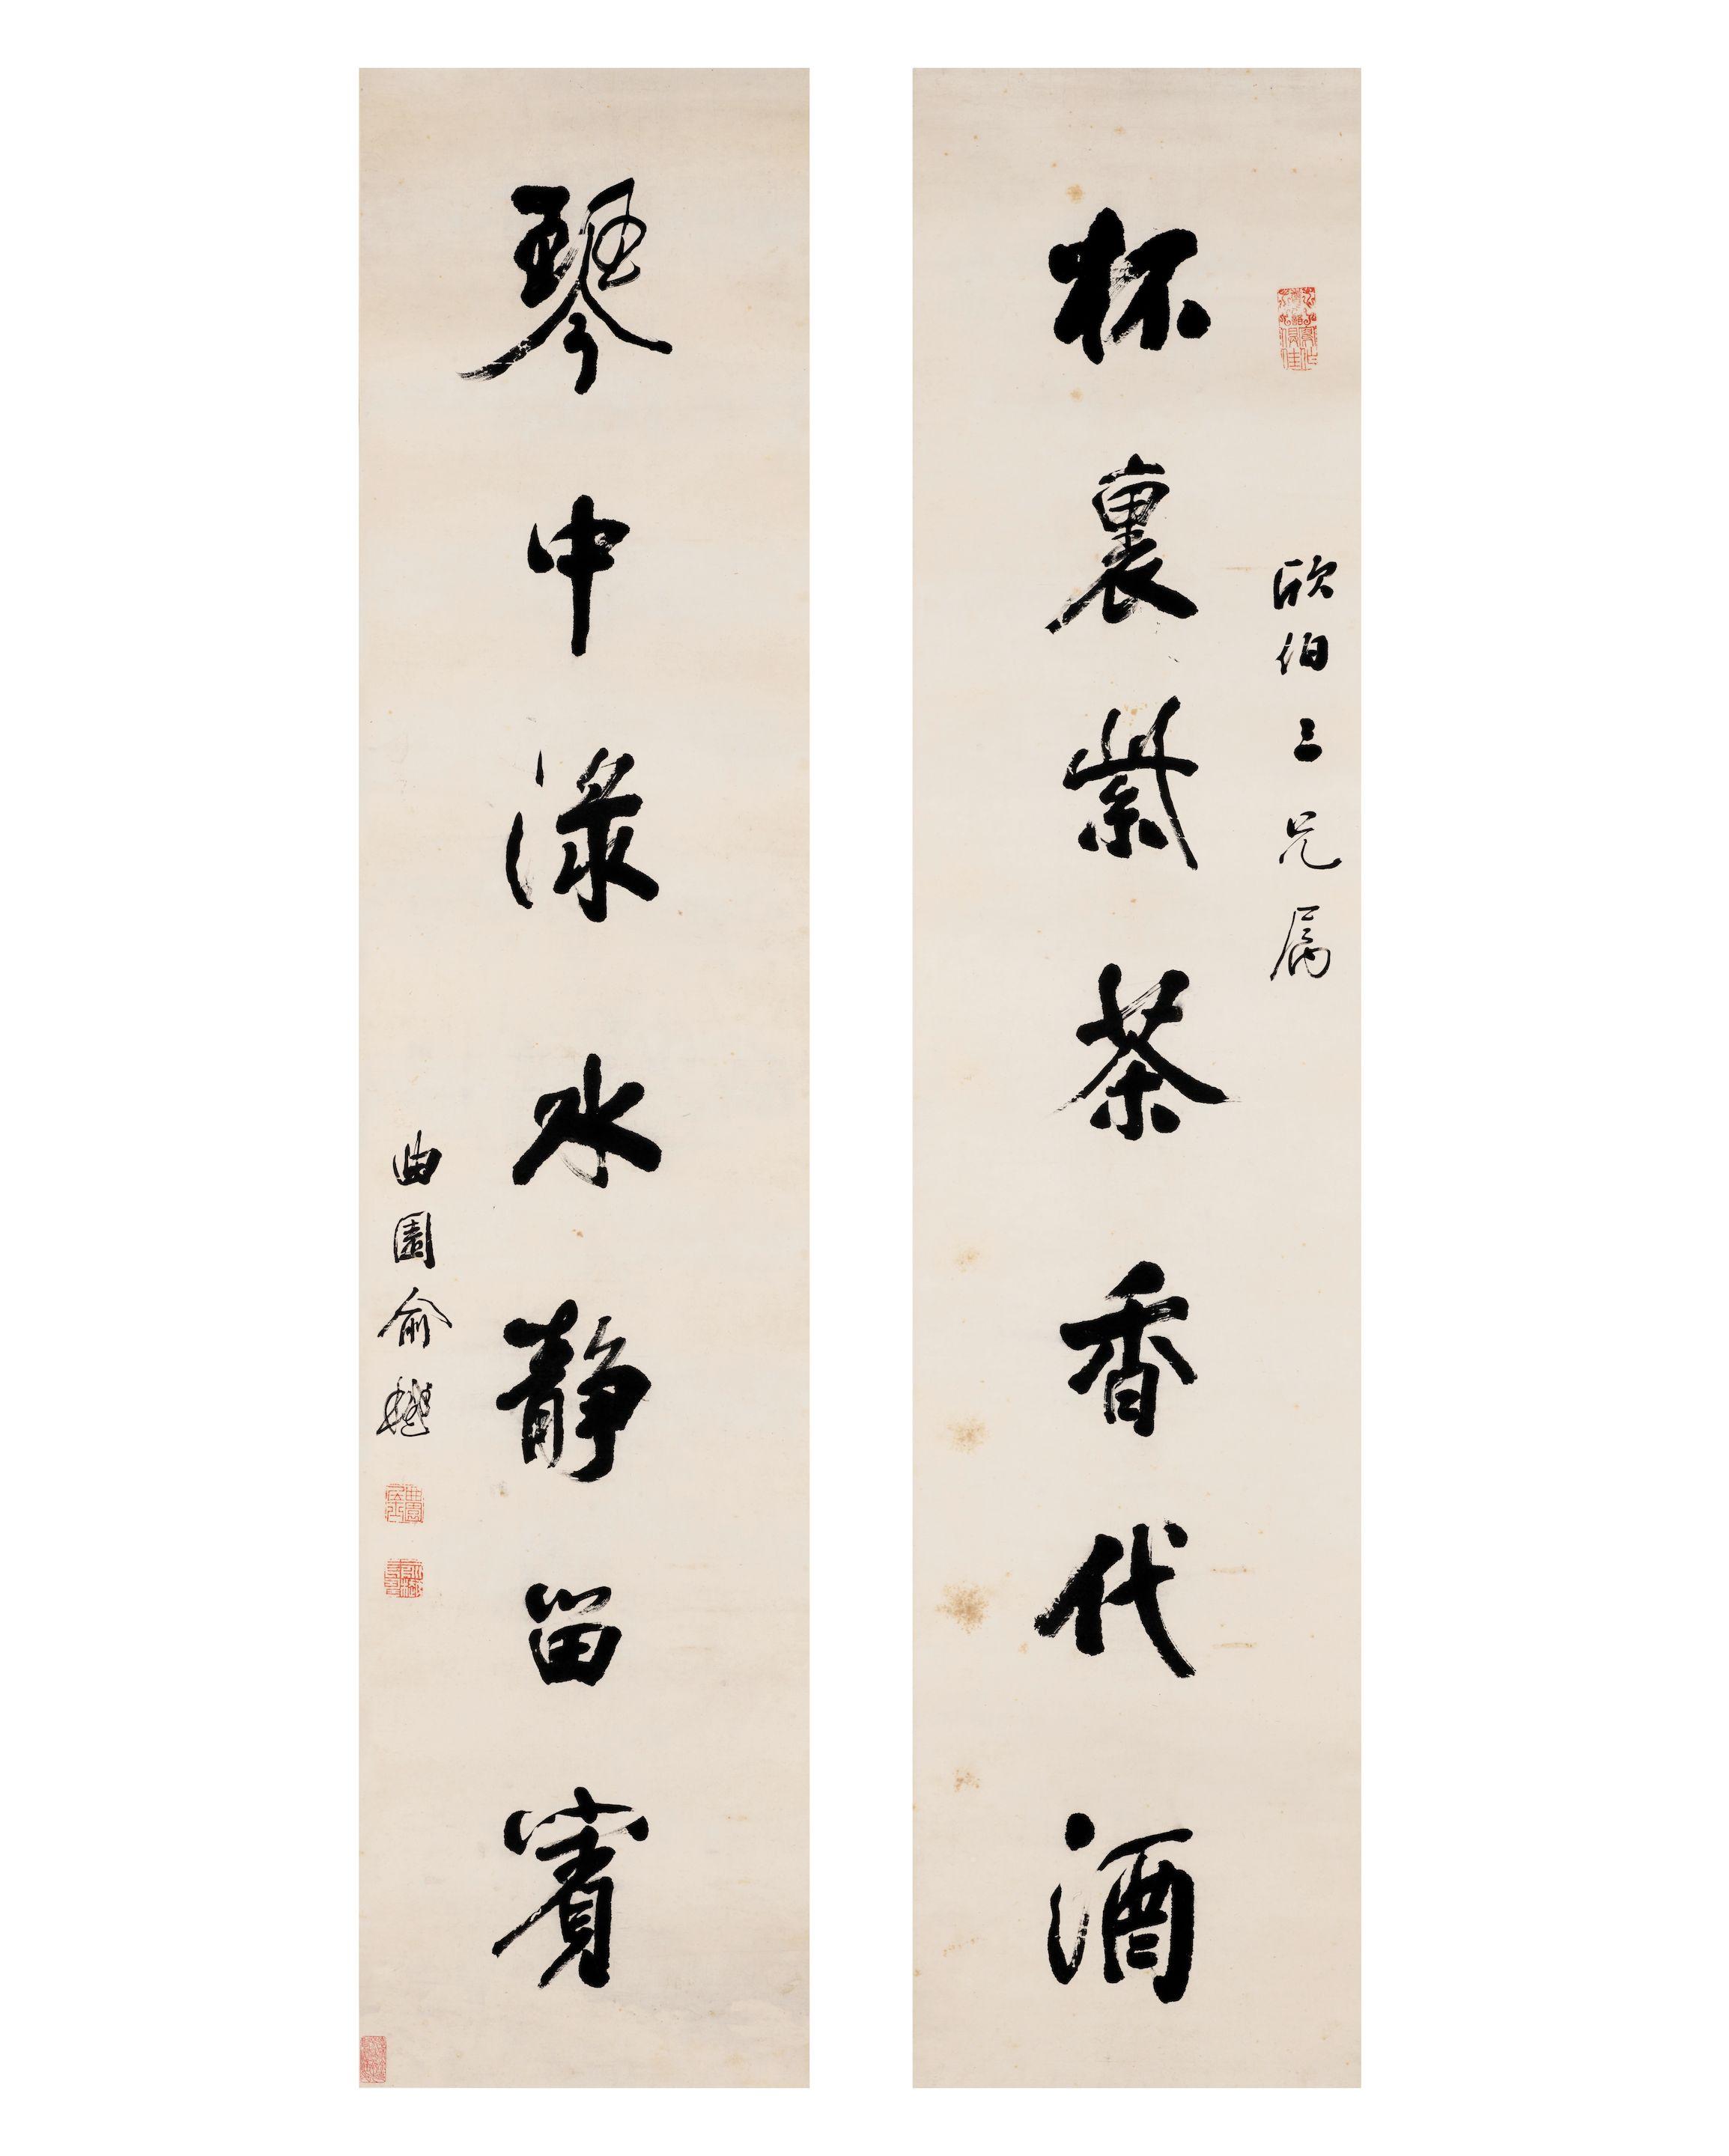 欣伯三兄属
杯裏紫茶香代酒
琴中渌水静留賓
曲園俞樾